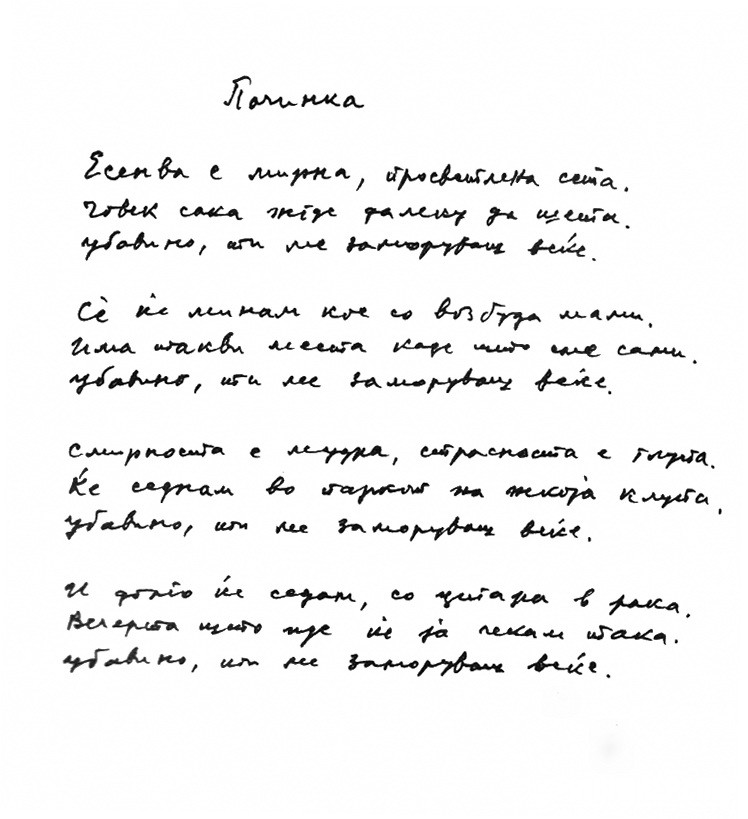 Починка
Есенва е мирна, просветлена сета.
Човек сака негде далеку да шета.
Убавино, ти ме заморуваш веќе.
Сѐ ќе минам кое со возбуда мами.
Има такви места каде што сме сами.
Убавино, ти ме заморуваш веќе.
Смирноста е мудра, страсноста е глупа.
Ќе седнам во паркот на некоја клупа,
Убавино, ти ме заморуваш веќе.
И долго ќе седам, со цигара в рака.
Вечерта што иде ќе ја чекам така.
Убавино, ти ме заморуваш веќе.